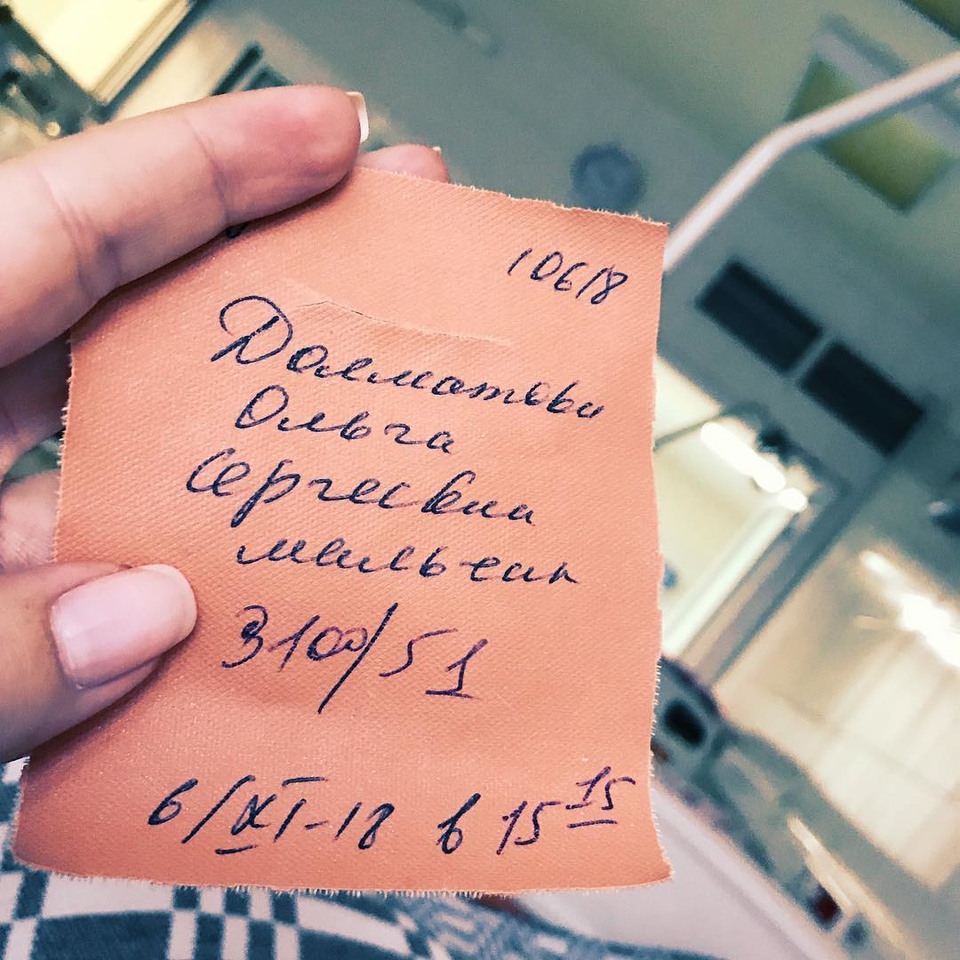 10618
Долматова
Ольга
Сергеевна
мальчик
3100/51
6/XI-18 в 15 15